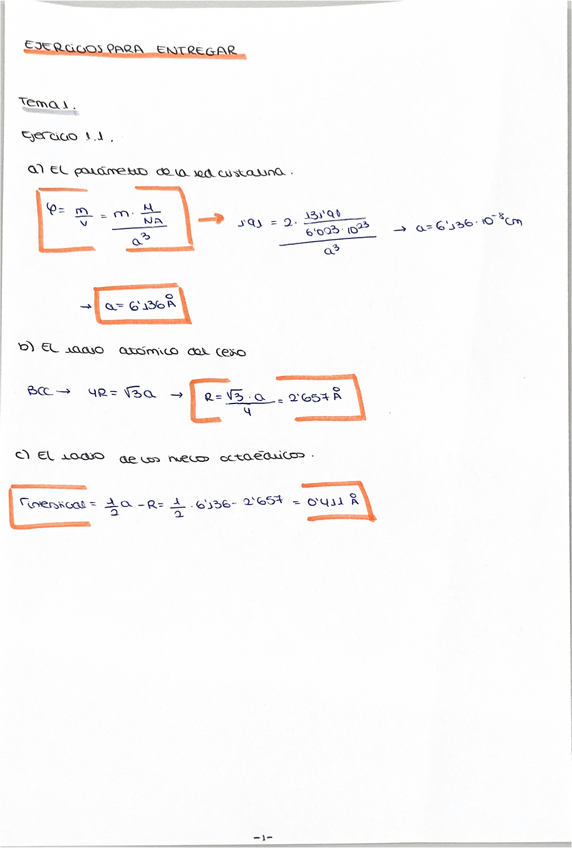 EJERCICIOS PARA ENTREGAR
Tema 1.
Ejercicio 1.1.
a) El parámetro de la red cristalina.
φ = m/V = (m · M/NA)/a³ → 1'91 = (2 · 131'90/(6'023 · 10²³))/a³ → a = 6'136 · 10⁻⁸ cm
→ a = 6'136 Å
b) El radio atómico del cesio
BCC → 4R = √3a → R = (√3 · a)/4 = 2'657 Å
c) El radio de los huecos octaédricos.
rintersticial = 1/2 a - R = 1/2 · 6'136 - 2'657 = 0'411 Å
-1-